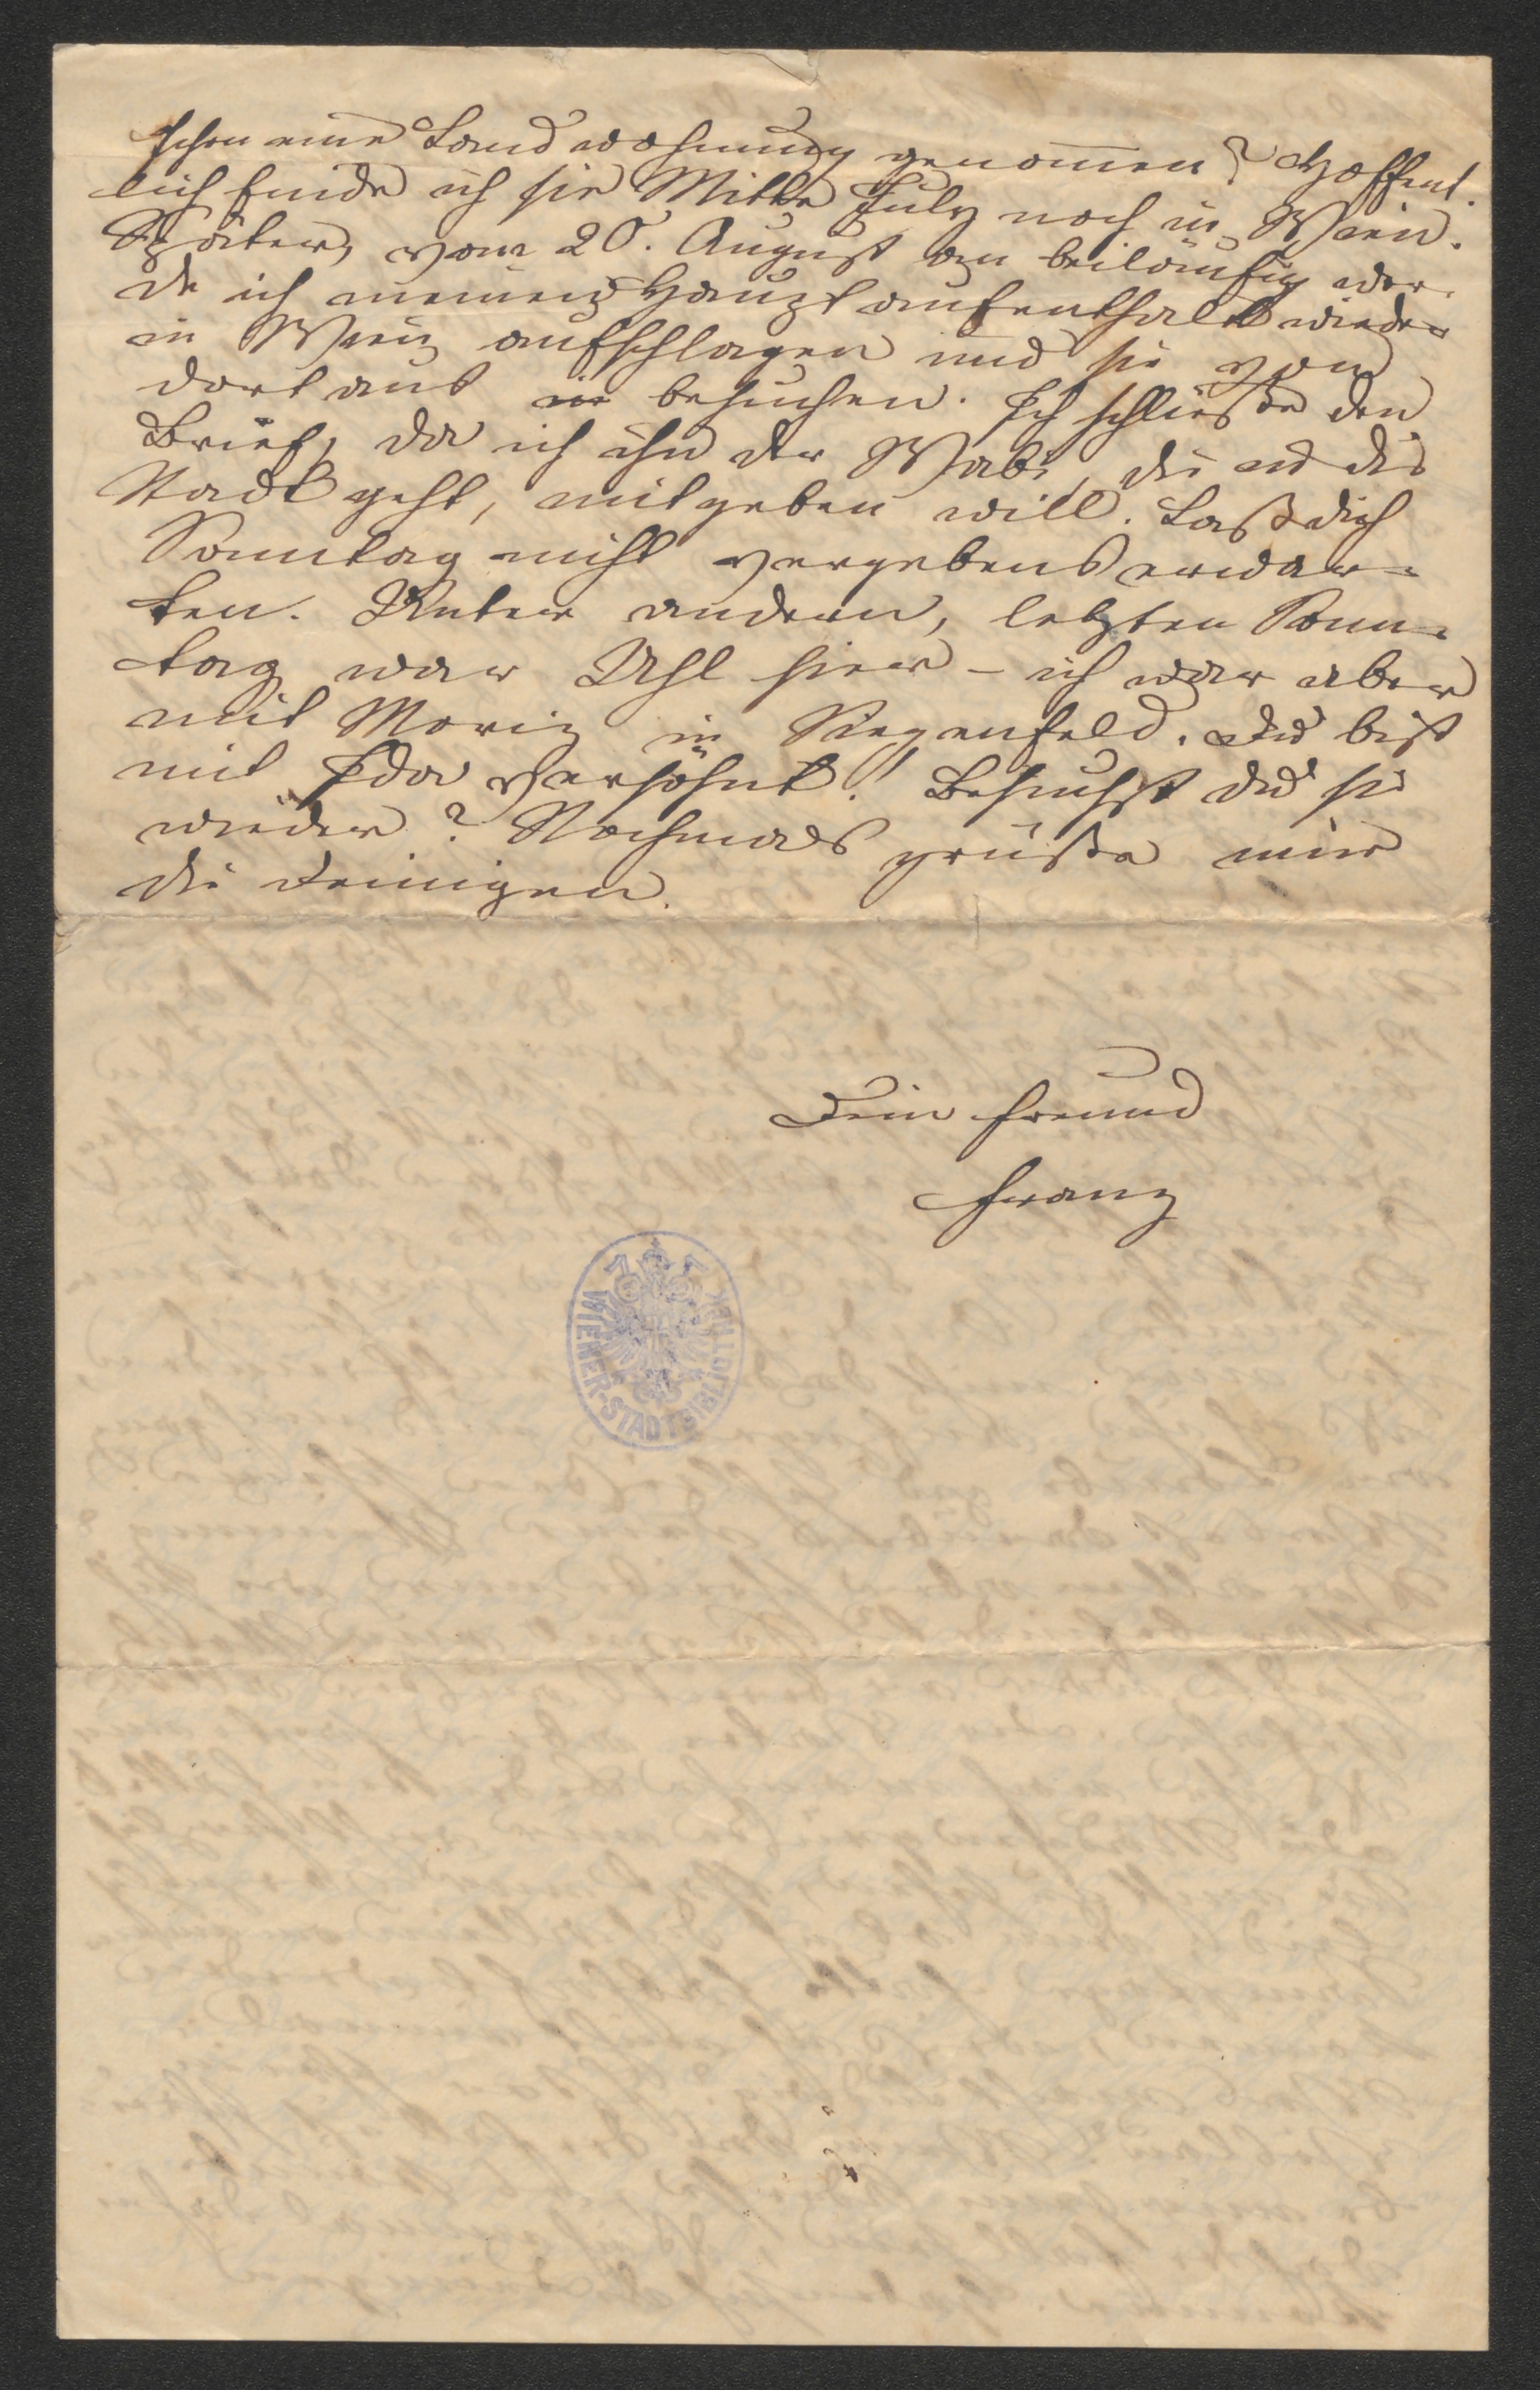 schon eine Landwohnung genom̅en? Hoffent-
lich finde ich sie Mitte July noch in Wien.
Später, vom 20. August an beiläufig wer-
de ich meinen Hauptaufenthalt wieder
in Wien aufschlagen und sie von
dort aus besuchen. Ich schließe den
Brief, da ich ihn der Wabi, die in die
Stadt geht, mitgeben will. Laß dich
Sonntag nicht vergebens erwar-
ten. Unter andern, letzten Sonn-
tag war Uhl hier – ich war aber
mit Moriz in Siegenfeld. Du bist
mit Ida versöhnt! Besuchst du sie
wieder? Nochmals grüße mir
die Deinigen.
Dein Freund
Franz
WIENER-STADTBIBLIOTHEK